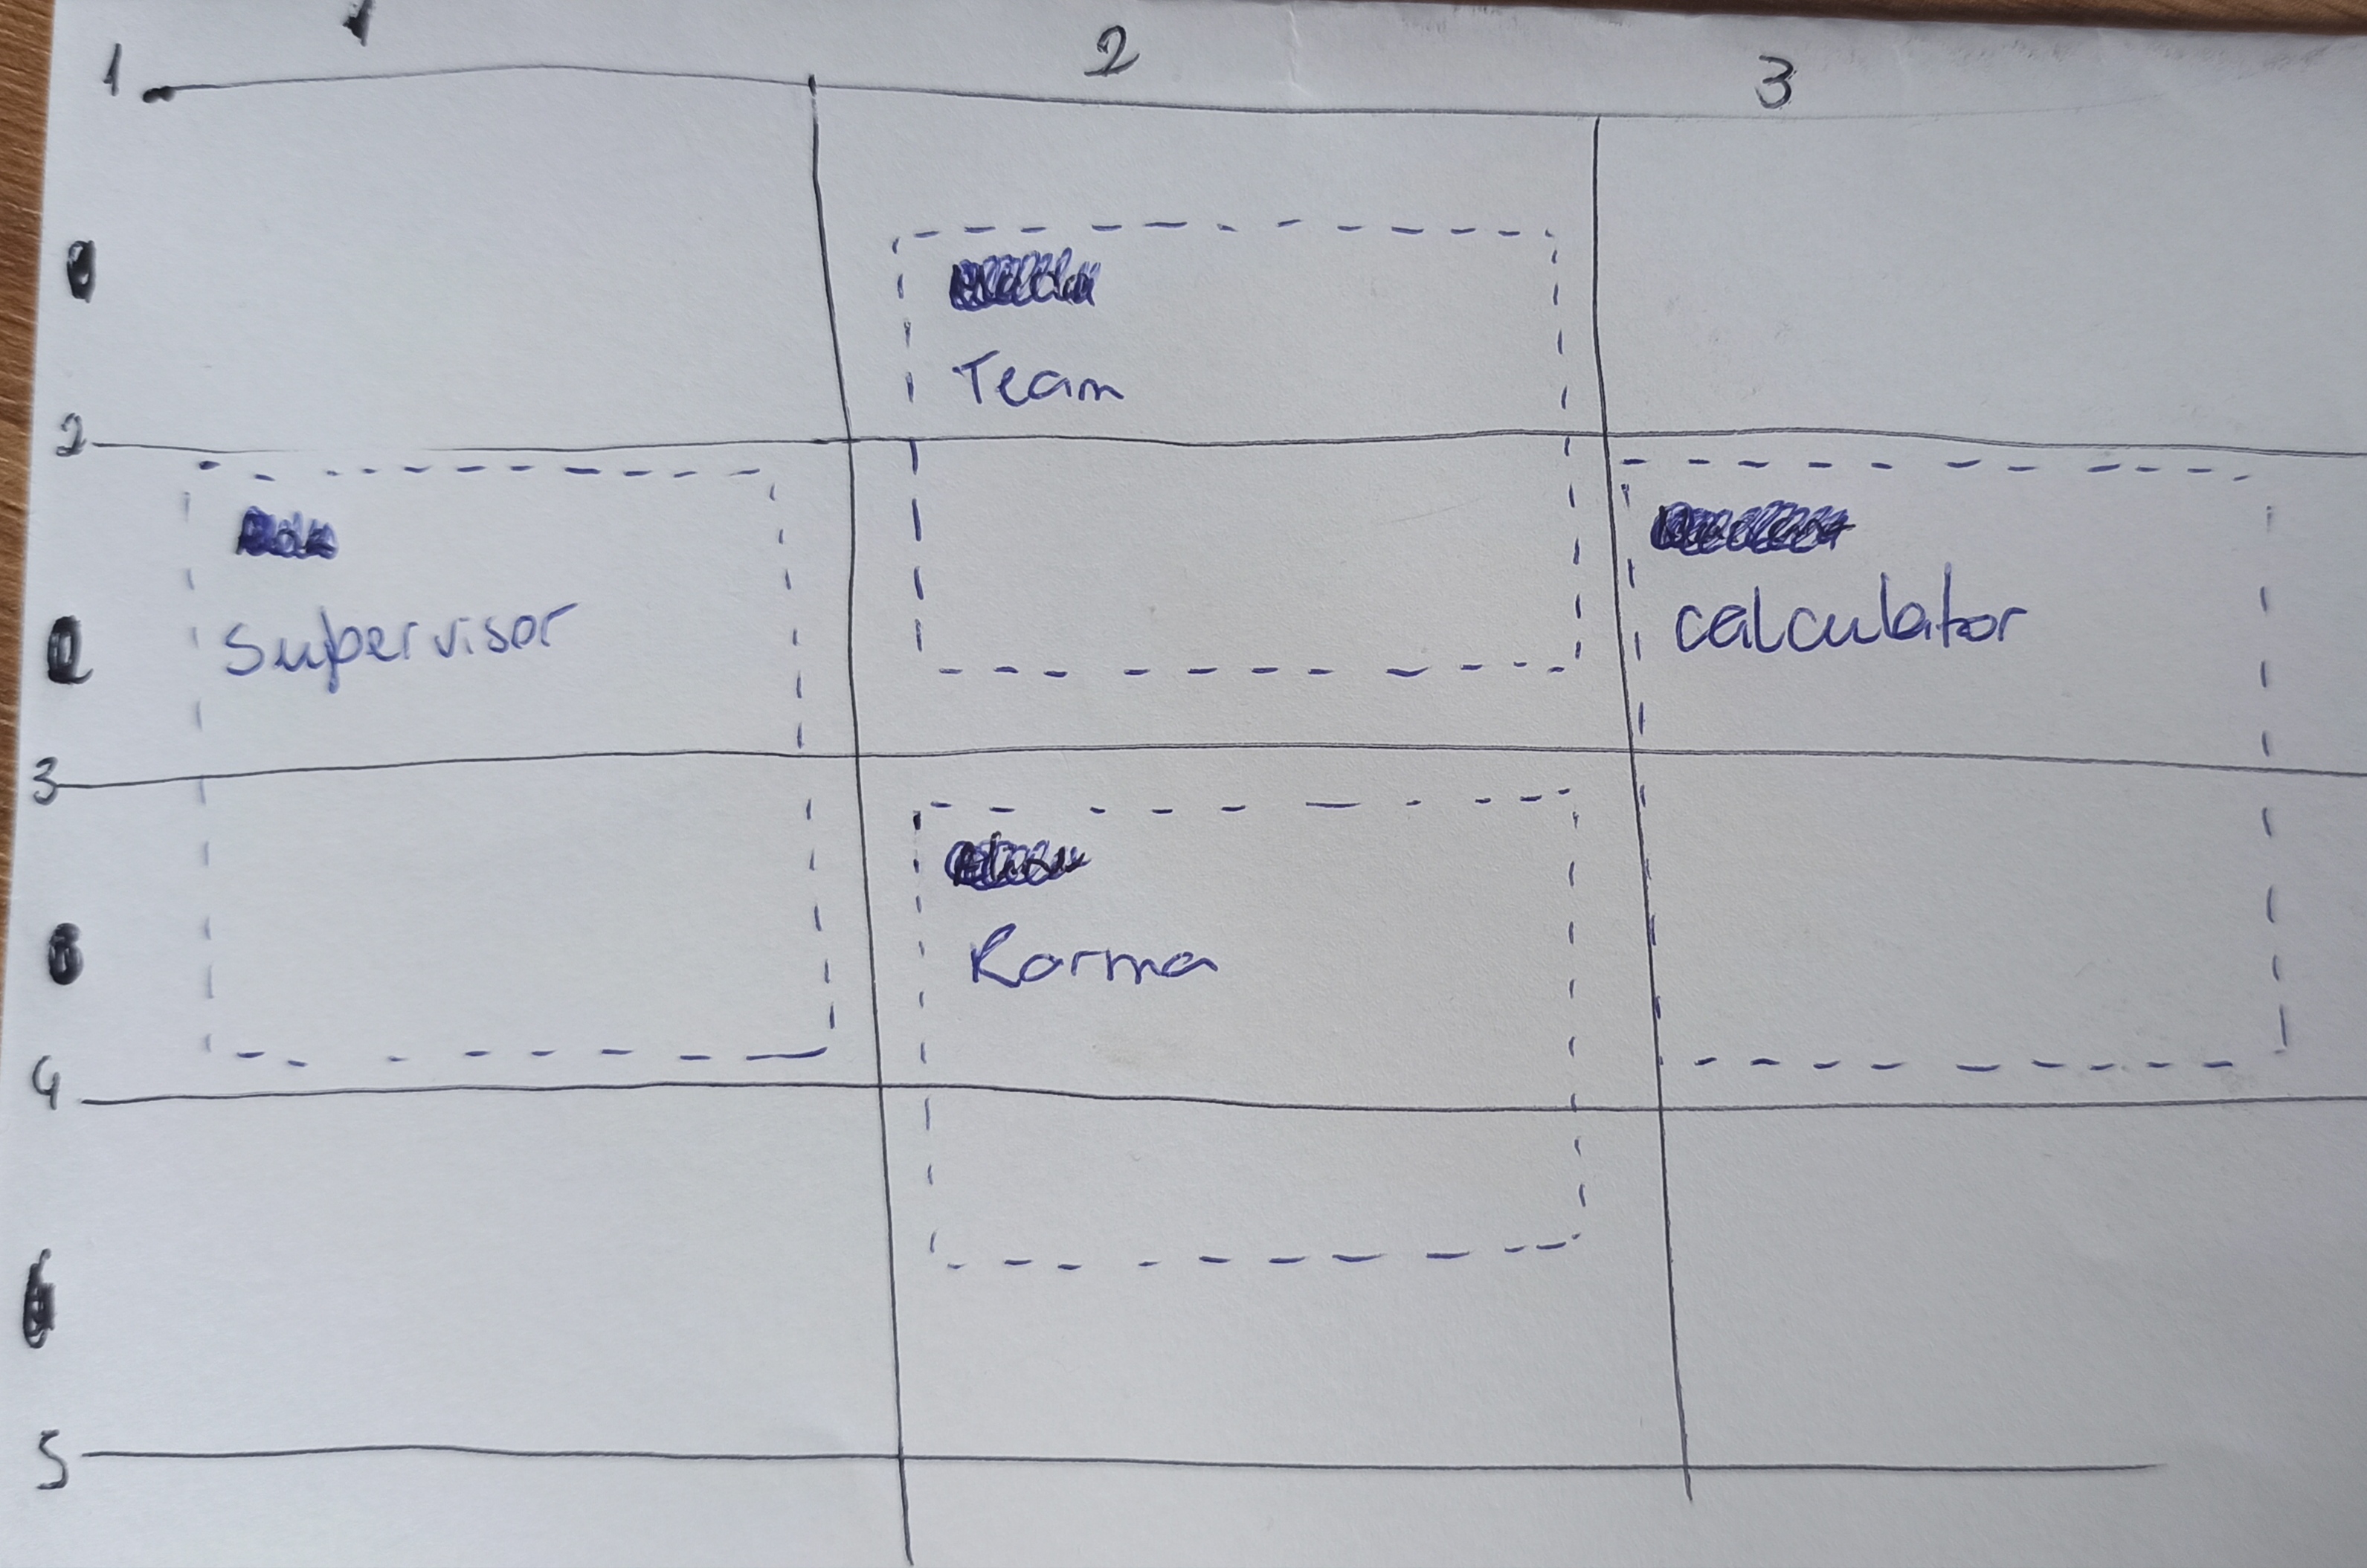 1
2
3
1
Team
2
Supervisor
calculator
3
Karma
4
5